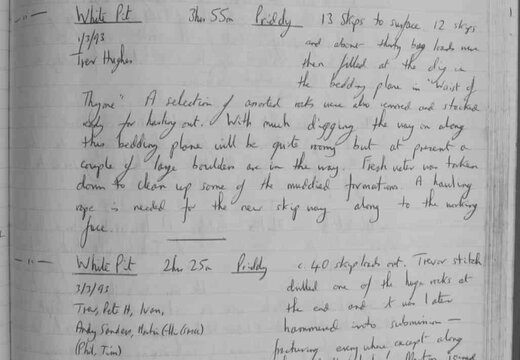 — " — White Pit 3hrs 55m Priddy 13 skips to surface. 12 skips
1/3/93 and above thirty bag loads were
Trev Hughes then filled at the dig in
the bedding plane in "Waist of
Thyme". A selection of assorted rocks were also removed and stacked
ready for hauling out. With much digging the way on along
this bedding plane will be quite roomy but at present a
couple of large boulders are in the way. Fresh water was taken
down to clean up some of the muddied formations. A hauling
rope is needed for the new skip way along to the working
face.
— " — White Pit 2hrs 25m Priddy c. 40 skip loads out. Trevor
3/3/93 drilled one of the huge rocks at
Trev, Pete H, Ivan, the end and it was later
Andy Sanders, Martin hammered into submission —
(Phil, Tim) everywhere except along